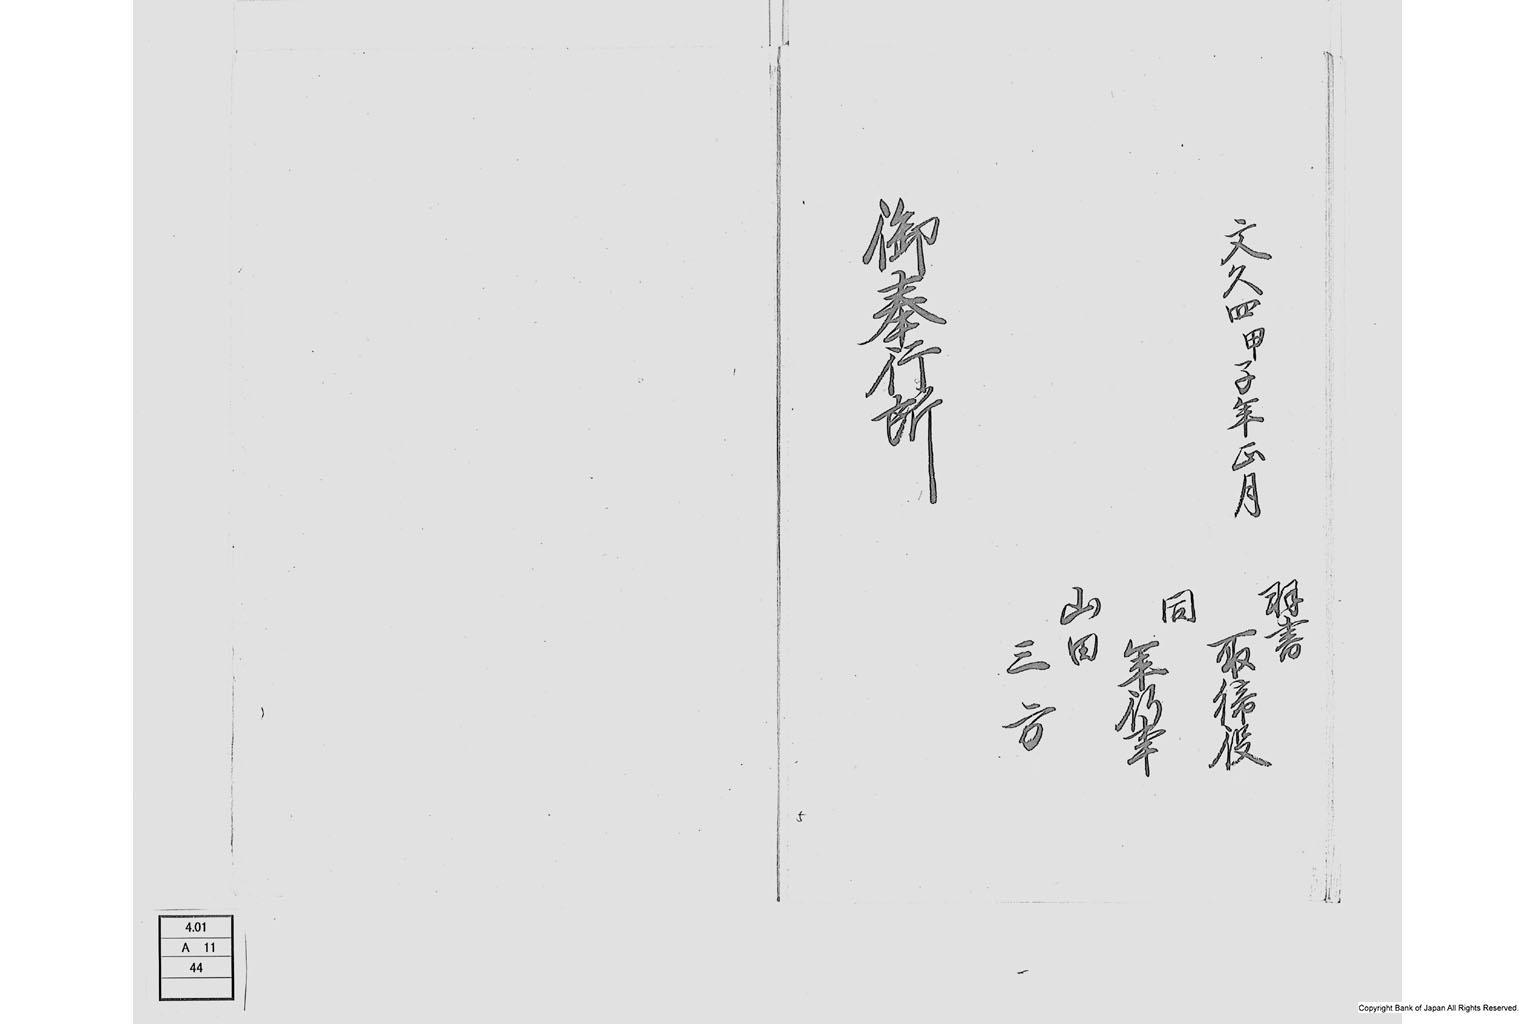 文久四甲子年正月
羽書
取締役
同
年行事
山田
三方
御奉行所
5
4.01
A 11
44
Copyright Bank of Japan All Rights Reserved.